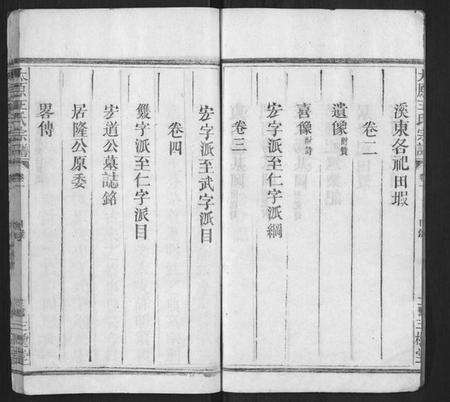 溪東各祀田塅
卷二
遺像附贊
喜像附詩
宏字派至仁字派綱
卷三
宏字派至武字派目
卷四
發字派至仁字派目
宏道公墓誌銘
居隆公原委
畧傳
太原王氏宗譜